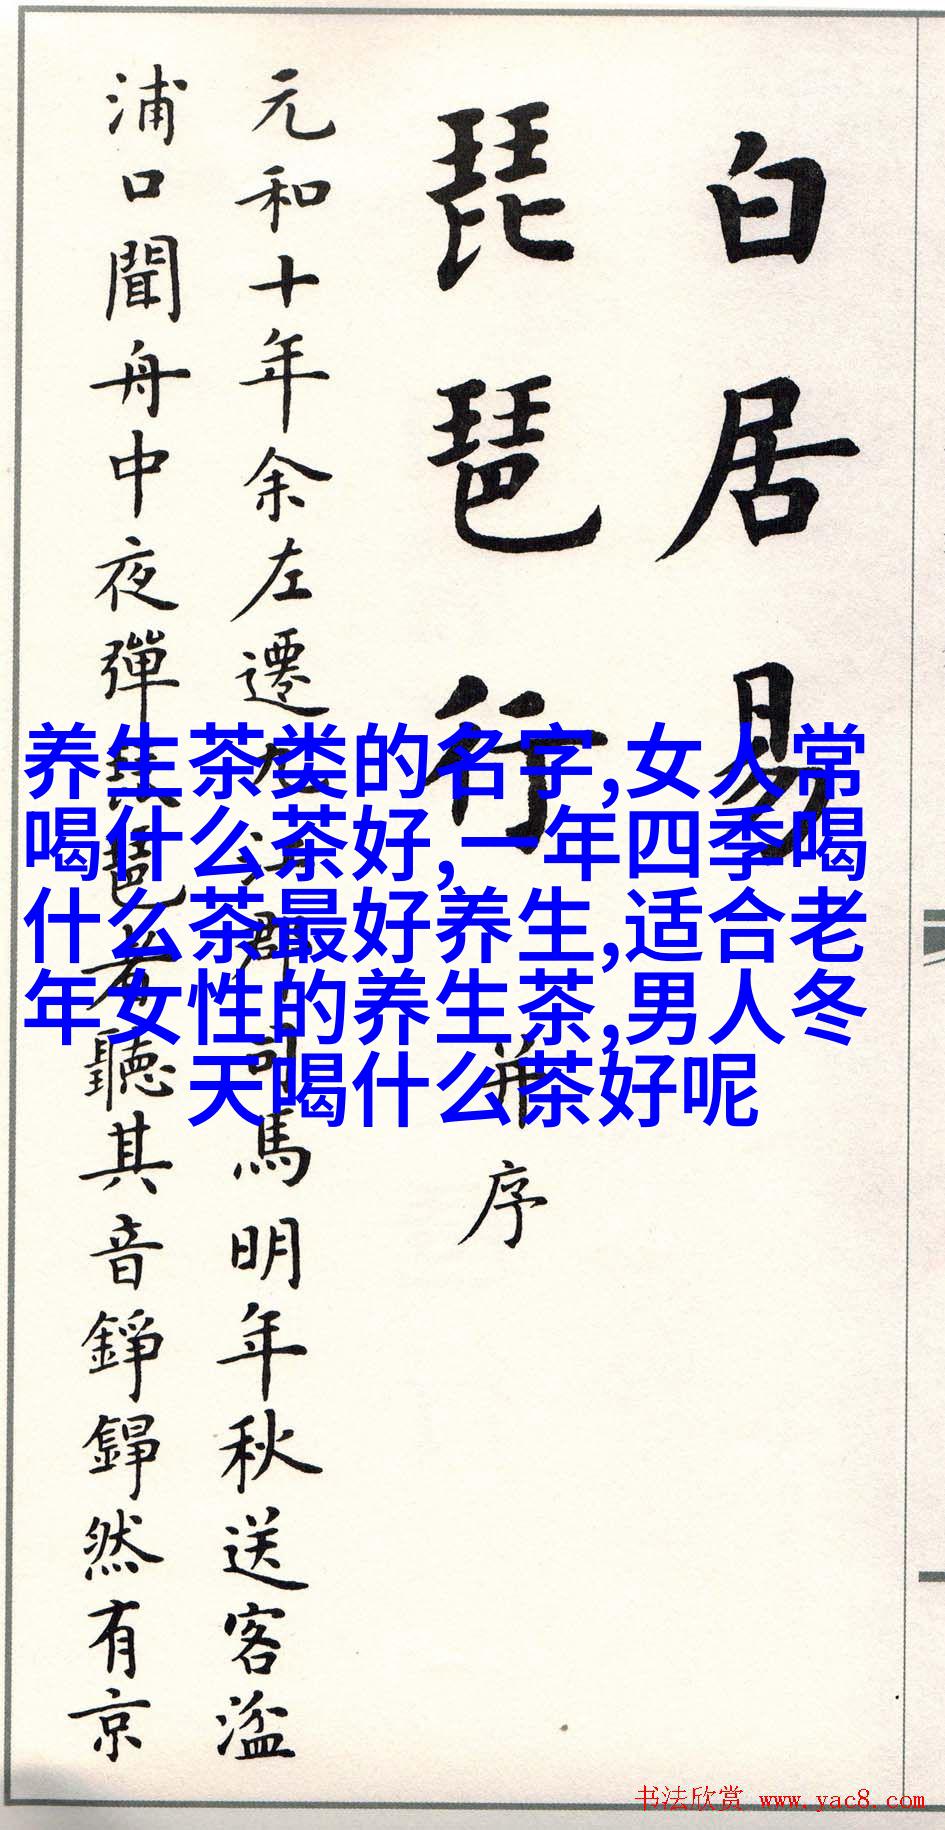 白居易
琵琶行 并序
元和十年余左遷九江郡司馬明年秋送客湓
浦口聞舟中夜彈琵琶者聽其音錚錚然有京
养生茶类的名字,女人常
喝什么茶好,一年四季喝
什么茶最好养生,适合老
年女性的养生茶,男人冬
天喝什么茶好呢
书法欣赏 www.yac8.com